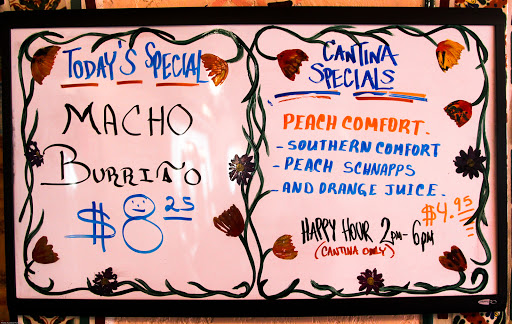 TODAY'S SPECIAL
MACHO
BURRIÑO
$8.25
CANTINA
SPECIALS
PEACH COMFORT.
- SOUTHERN COMFORT
- PEACH SCHNAPPS
- AND ORANGE JUICE.
$4.95
HAPPY HOUR 2PM-6PM
(CANTINA ONLY)